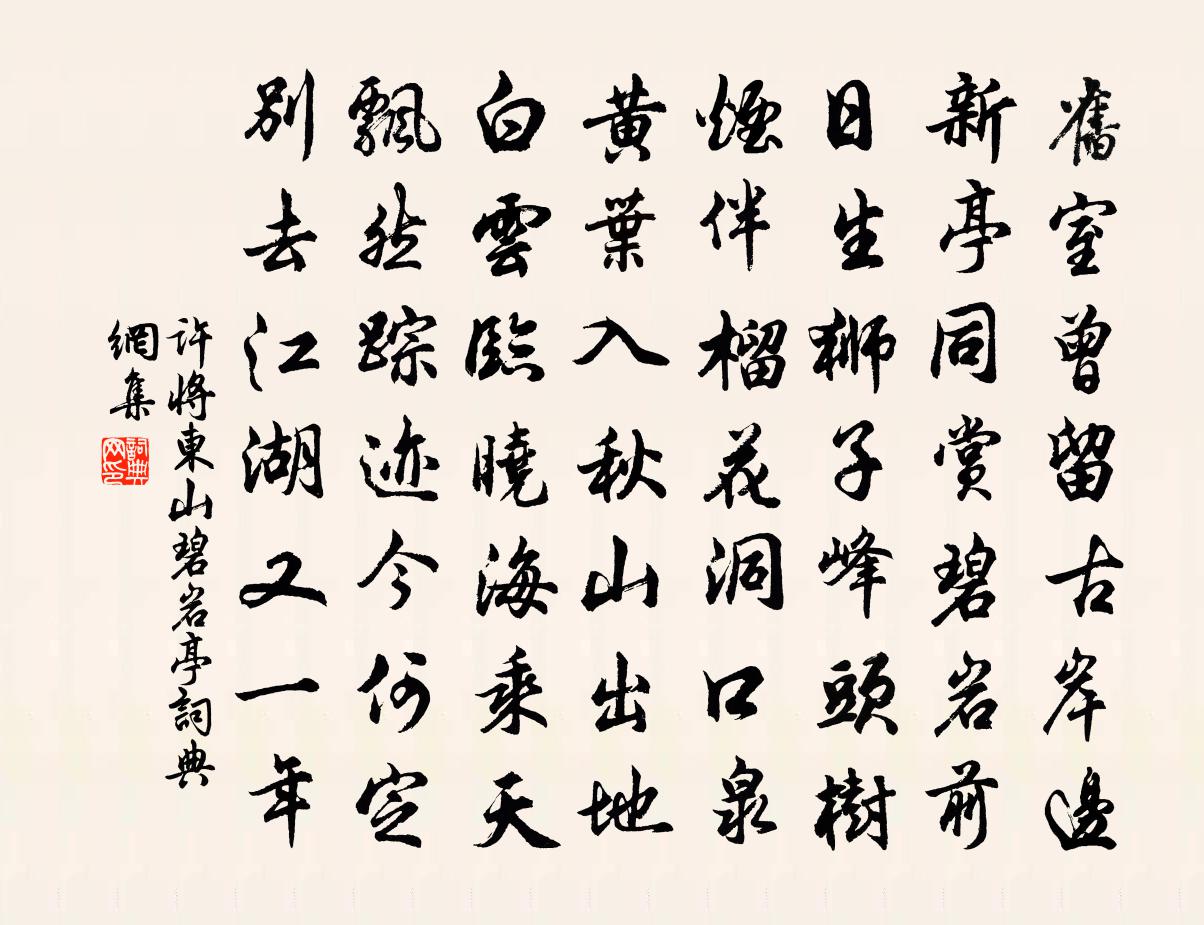 舊室曾留古岸邊
新亭同賞碧岩前
日生獅子峰頭樹
煙伴榴花洞口泉
黃葉入秋山出地
白雲臨曉海乘天
飄然踪迹今何定
別去江湖又一年
許將東山碧岩亭詞典
網集
詞典
网印